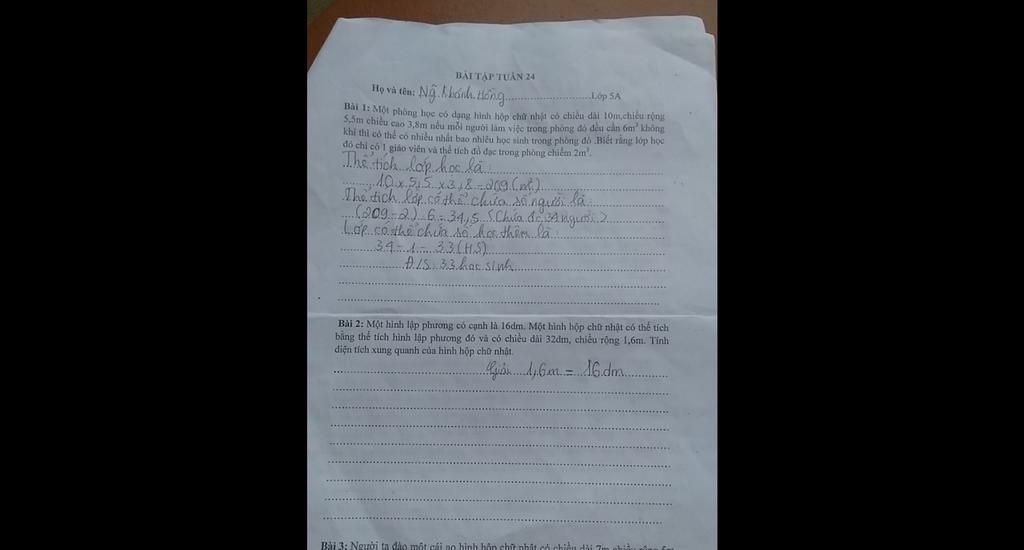 BÀI TẬP TUẦN 24
Họ và tên: Ng. Khánh Hồng Lớp 5A
Bài 1: Một phòng học có dạng hình hộp chữ nhật có chiều dài 10m,chiều rộng
5,5m chiều cao 3,8m nếu mỗi người làm việc trong phòng đó đều cần 6m³ không
khí thì có thể có nhiều nhất bao nhiêu học sinh trong phòng đó .Biết rằng lớp học
đó chỉ có 1 giáo viên và thể tích đồ đạc trong phòng chiếm 2m³.
Thể tích lớp học là:
10 x 5,5 x 3,8 = 209 (m³)
Thể tích lớp có thể chứa số người là:
(209 - 2) : 6 = 34,5 (Chứa đc 34 người)
Lớp có thể chứa số học thêm là:
34 - 1 = 33 (HS)
Đ/S: 33 học sinh
Bài 2: Một hình lập phương có cạnh là 16dm. Một hình hộp chữ nhật có thể tích
bằng thể tích hình lập phương đó và có chiều dài 32dm, chiều rộng 1,6m. Tính
diện tích xung quanh của hình hộp chữ nhật.
Giải 1,6m = 16 dm
Bài 3: Người ta đào một cái ao hình hộp chữ nhật có chiều dài 7m chiều rộng